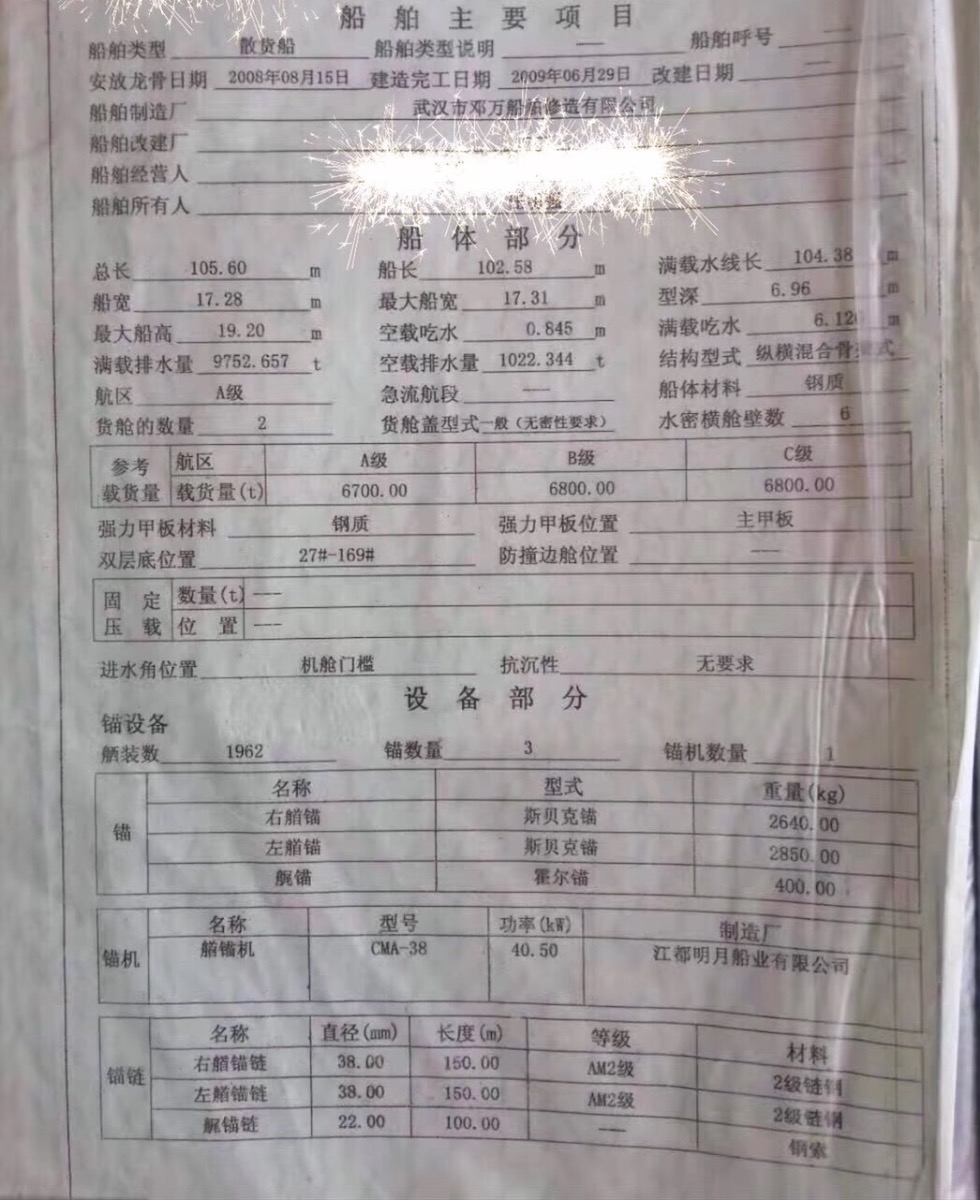 船舶主要项目
船舶类型 散货船 船舶类型说明 —— 船舶呼号 ——
安放龙骨日期 2008年08月15日 建造完工日期 2009年06月29日 改建日期 ——
船舶制造厂 武汉市邓万船舶修造有限公司
船舶改建厂
船舶经营人
船舶所有人
船体部分
总长 105.60 m 船长 102.58 m 满载水线长 104.38 m
船宽 17.28 m 最大船宽 17.31 m 型深 6.96 m
最大船高 19.20 m 空载吃水 0.845 m 满载吃水 6.120 m
满载排水量 9752.657 t 空载排水量 1022.344 t 结构型式 纵横混合骨架式
航区 A级 急流航段 —— 船体材料 钢质
货舱的数量 2 货舱盖型式 一般(无密性要求) 水密横舱壁数 6
参考 航区 A级 B级 C级
载货量 载货量(t) 6700.00 6800.00 6800.00
强力甲板材料 钢质 强力甲板位置 主甲板
双层底位置 27#-169# 防撞边舱位置 ---
固定 数量(t) ---
压载 位置 ---
进水角位置 机舱门槛 抗沉性 无要求
设备部分
锚设备
舾装数 1962 锚数量 3 锚机数量 1
锚 名称 型式 重量(kg)
右艏锚 斯贝克锚 2640.00
左艏锚 斯贝克锚 2850.00
艉锚 霍尔锚 400.00
锚机 名称 型号 功率(kW) 制造厂
艏锚机 CMA-38 40.50 江都明月船业有限公司
锚链 名称 直径(mm) 长度(m) 等级 材料
右艏锚链 38.00 150.00 AM2级 2级链钢
左艏锚链 38.00 150.00 AM2级 2级链钢
艉锚链 22.00 100.00 —— 钢索